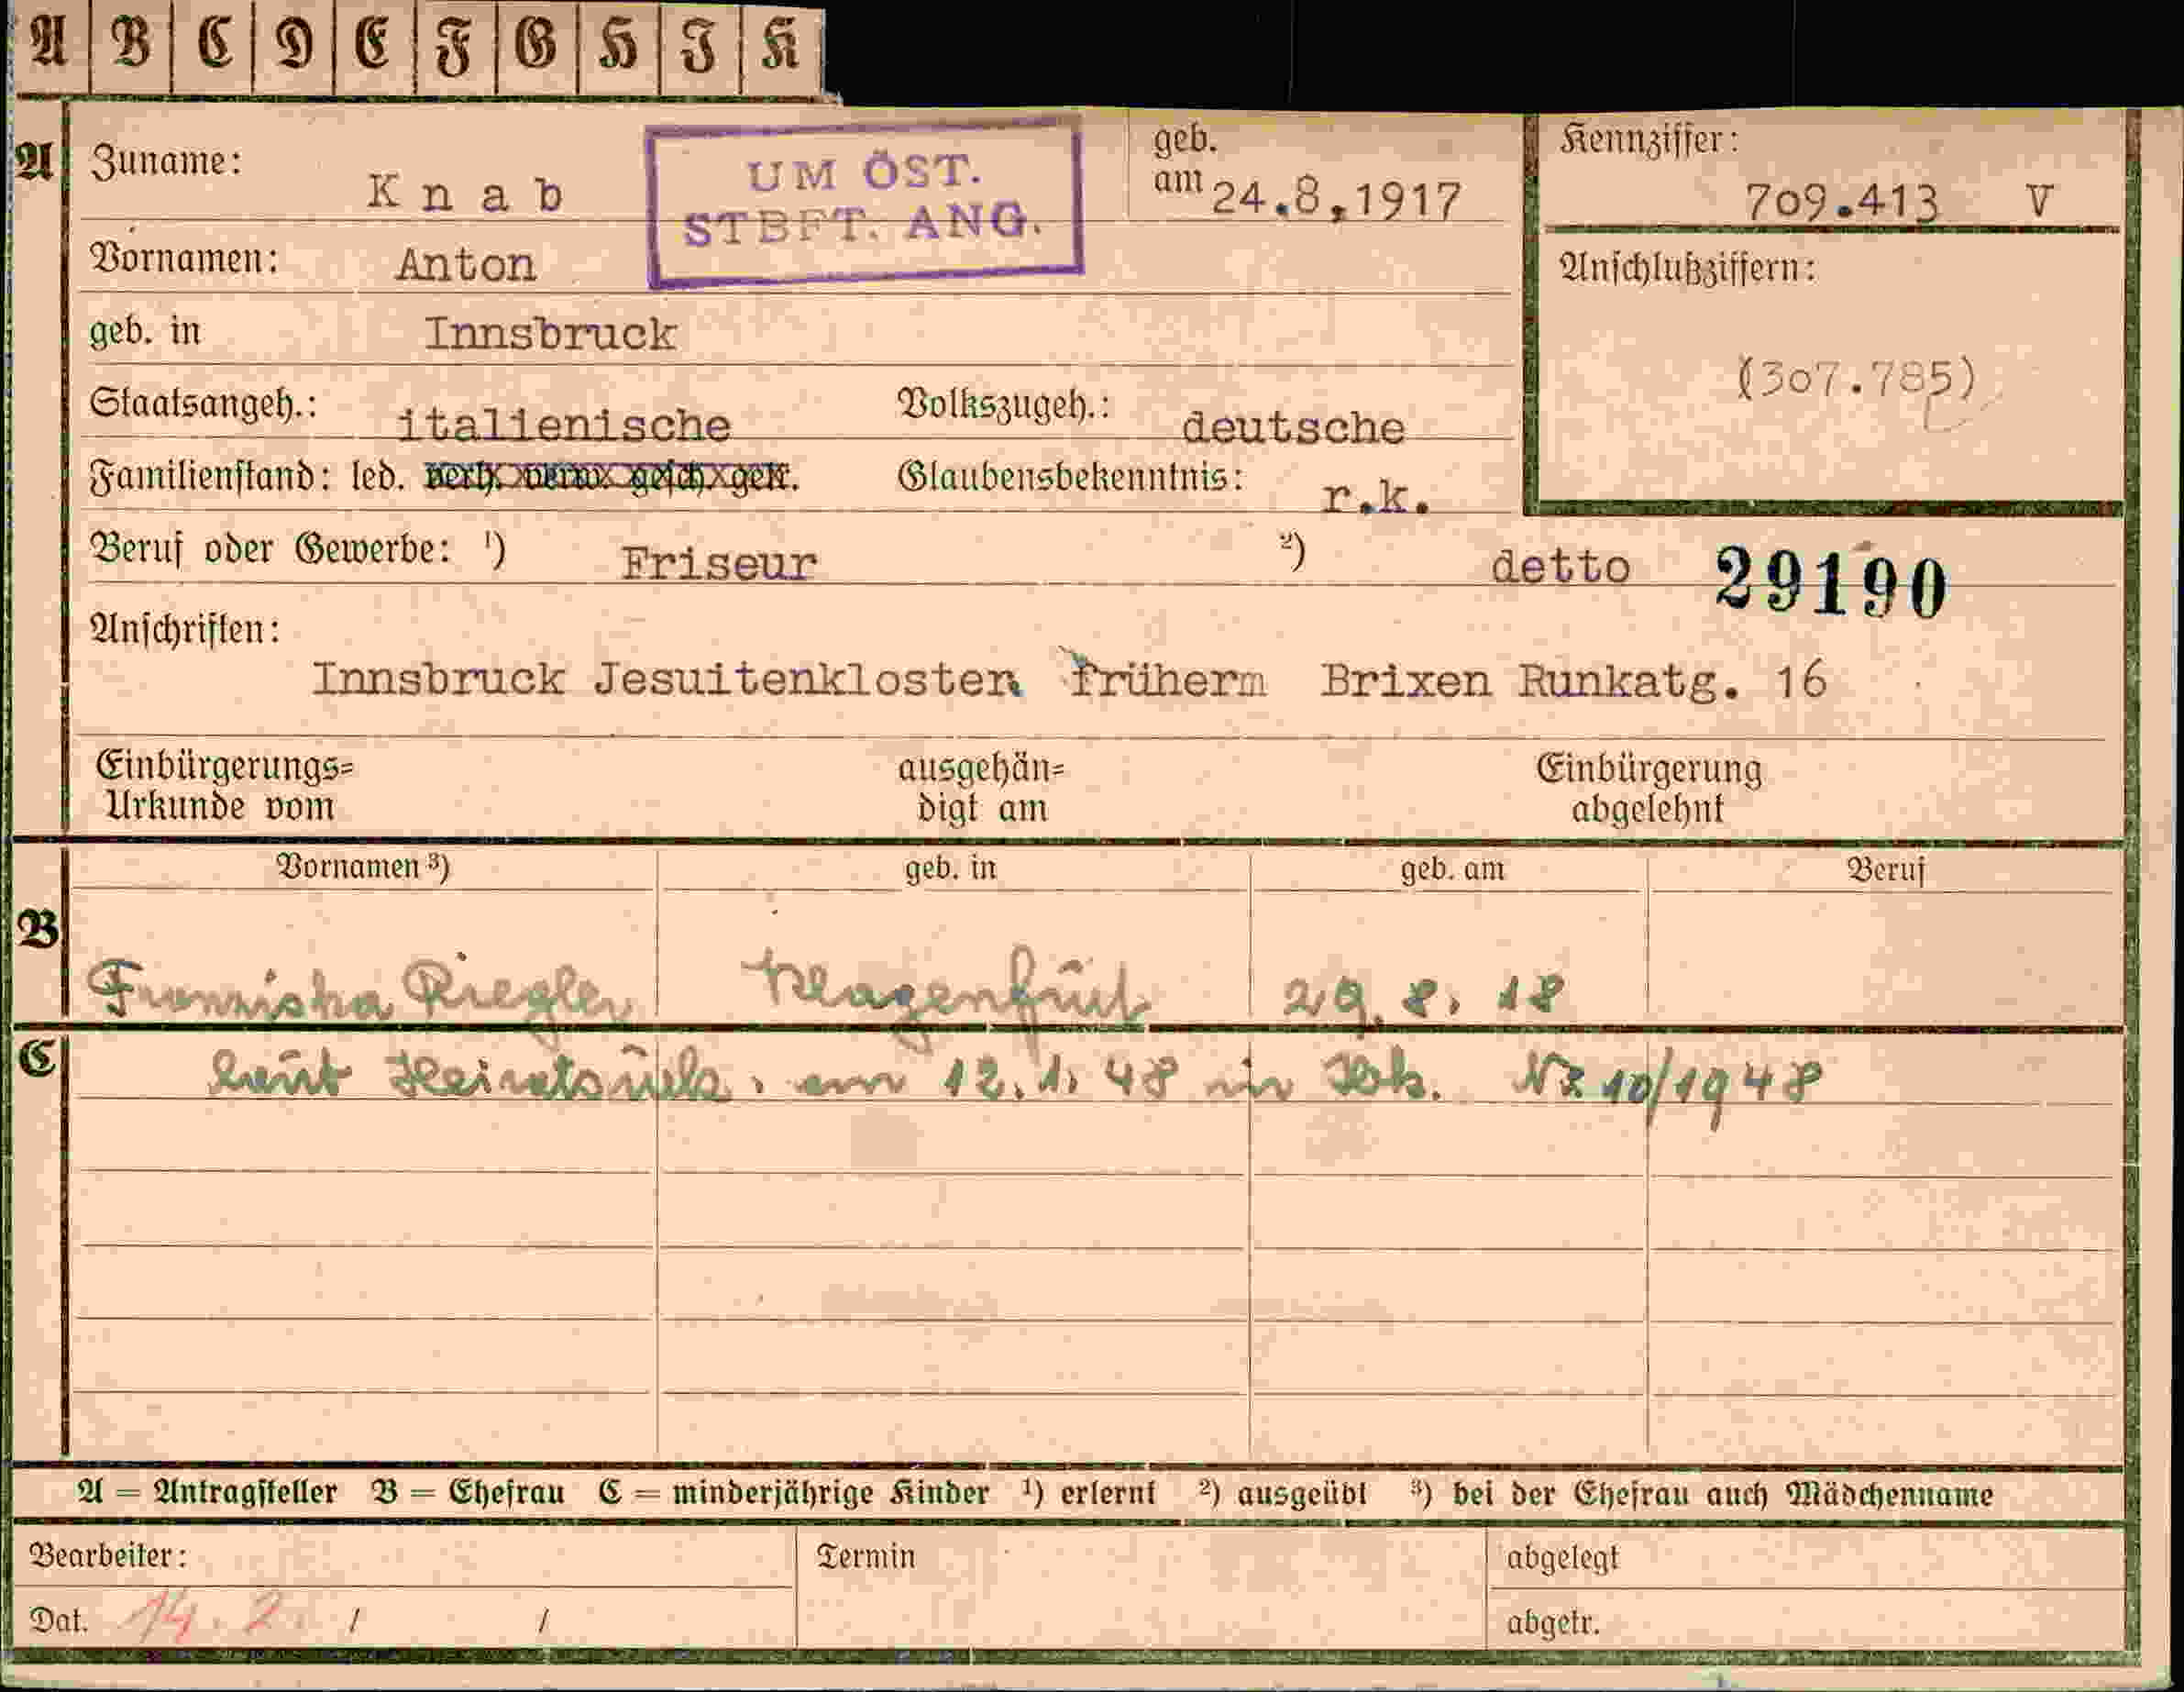 A B C D E F G H I K
A Zuname: Knab UM ÖST. STBFT. ANG. geb. am 24.8.1917 Kennziffer: 709.413 V
Vornamen: Anton Anschlußziffern:
geb. in Innsbruck (307.785)
Staatsangeh.: italienische Volkszugeh.: deutsche
Familienstand: led. verh. verw. gesch. getr. Glaubensbekenntnis: r.k.
Beruf oder Gewerbe: ¹) Friseur ²) detto 29190
Anschriften:
Innsbruck Jesuitenkloster früherm Brixen Runkatg. 16
Einbürgerungs= ausgehän= Einbürgerung
Urkunde vom digt am abgelehnt
Vornamen ³) geb. in geb. am Beruf
B Franziska Riegler Klagenfurt 29.8.18
C laut Heiratsurk. am 12.1.48 in Ibk. Nr. 10/1948
A = Antragsteller B = Ehefrau C = minderjährige Kinder ¹) erlernt ²) ausgeübt ³) bei der Ehefrau auch Mädchenname
Bearbeiter: Termin abgelegt
Dat. 14.2. / / abgetr.